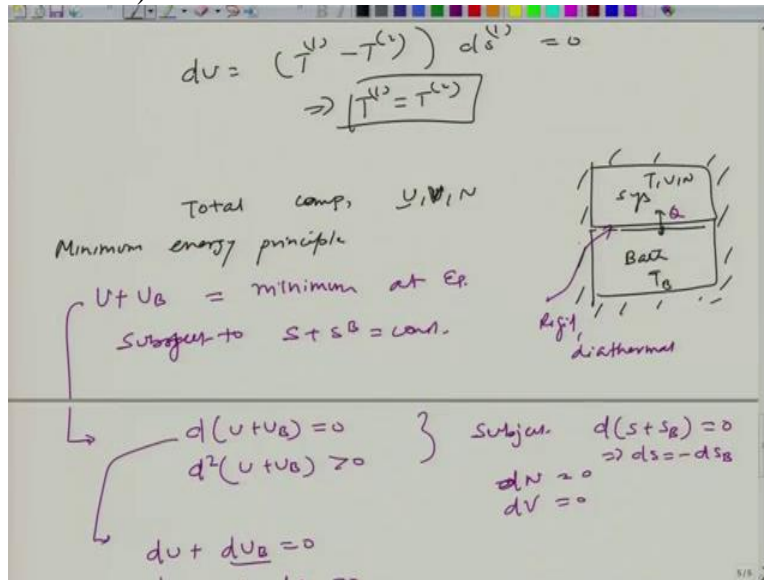 dU = (T⁽¹⁾ - T⁽²⁾) dS⁽¹⁾ = 0
⇒ T⁽¹⁾ = T⁽²⁾
Total comp, U, V, N
Minimum energy principle
U + U_B = minimum at Eq.
Subject to S + S^B = cons.
T, V, N
Sys
Q
Bath
T_B
Rigid,
diathermal
d(U+U_B) = 0 } Subject. d(S+S_B) = 0
d²(U+U_B) > 0 ⇒ dS = -dS_B
dN = 0
dV = 0
dU + dU_B = 0
5/5